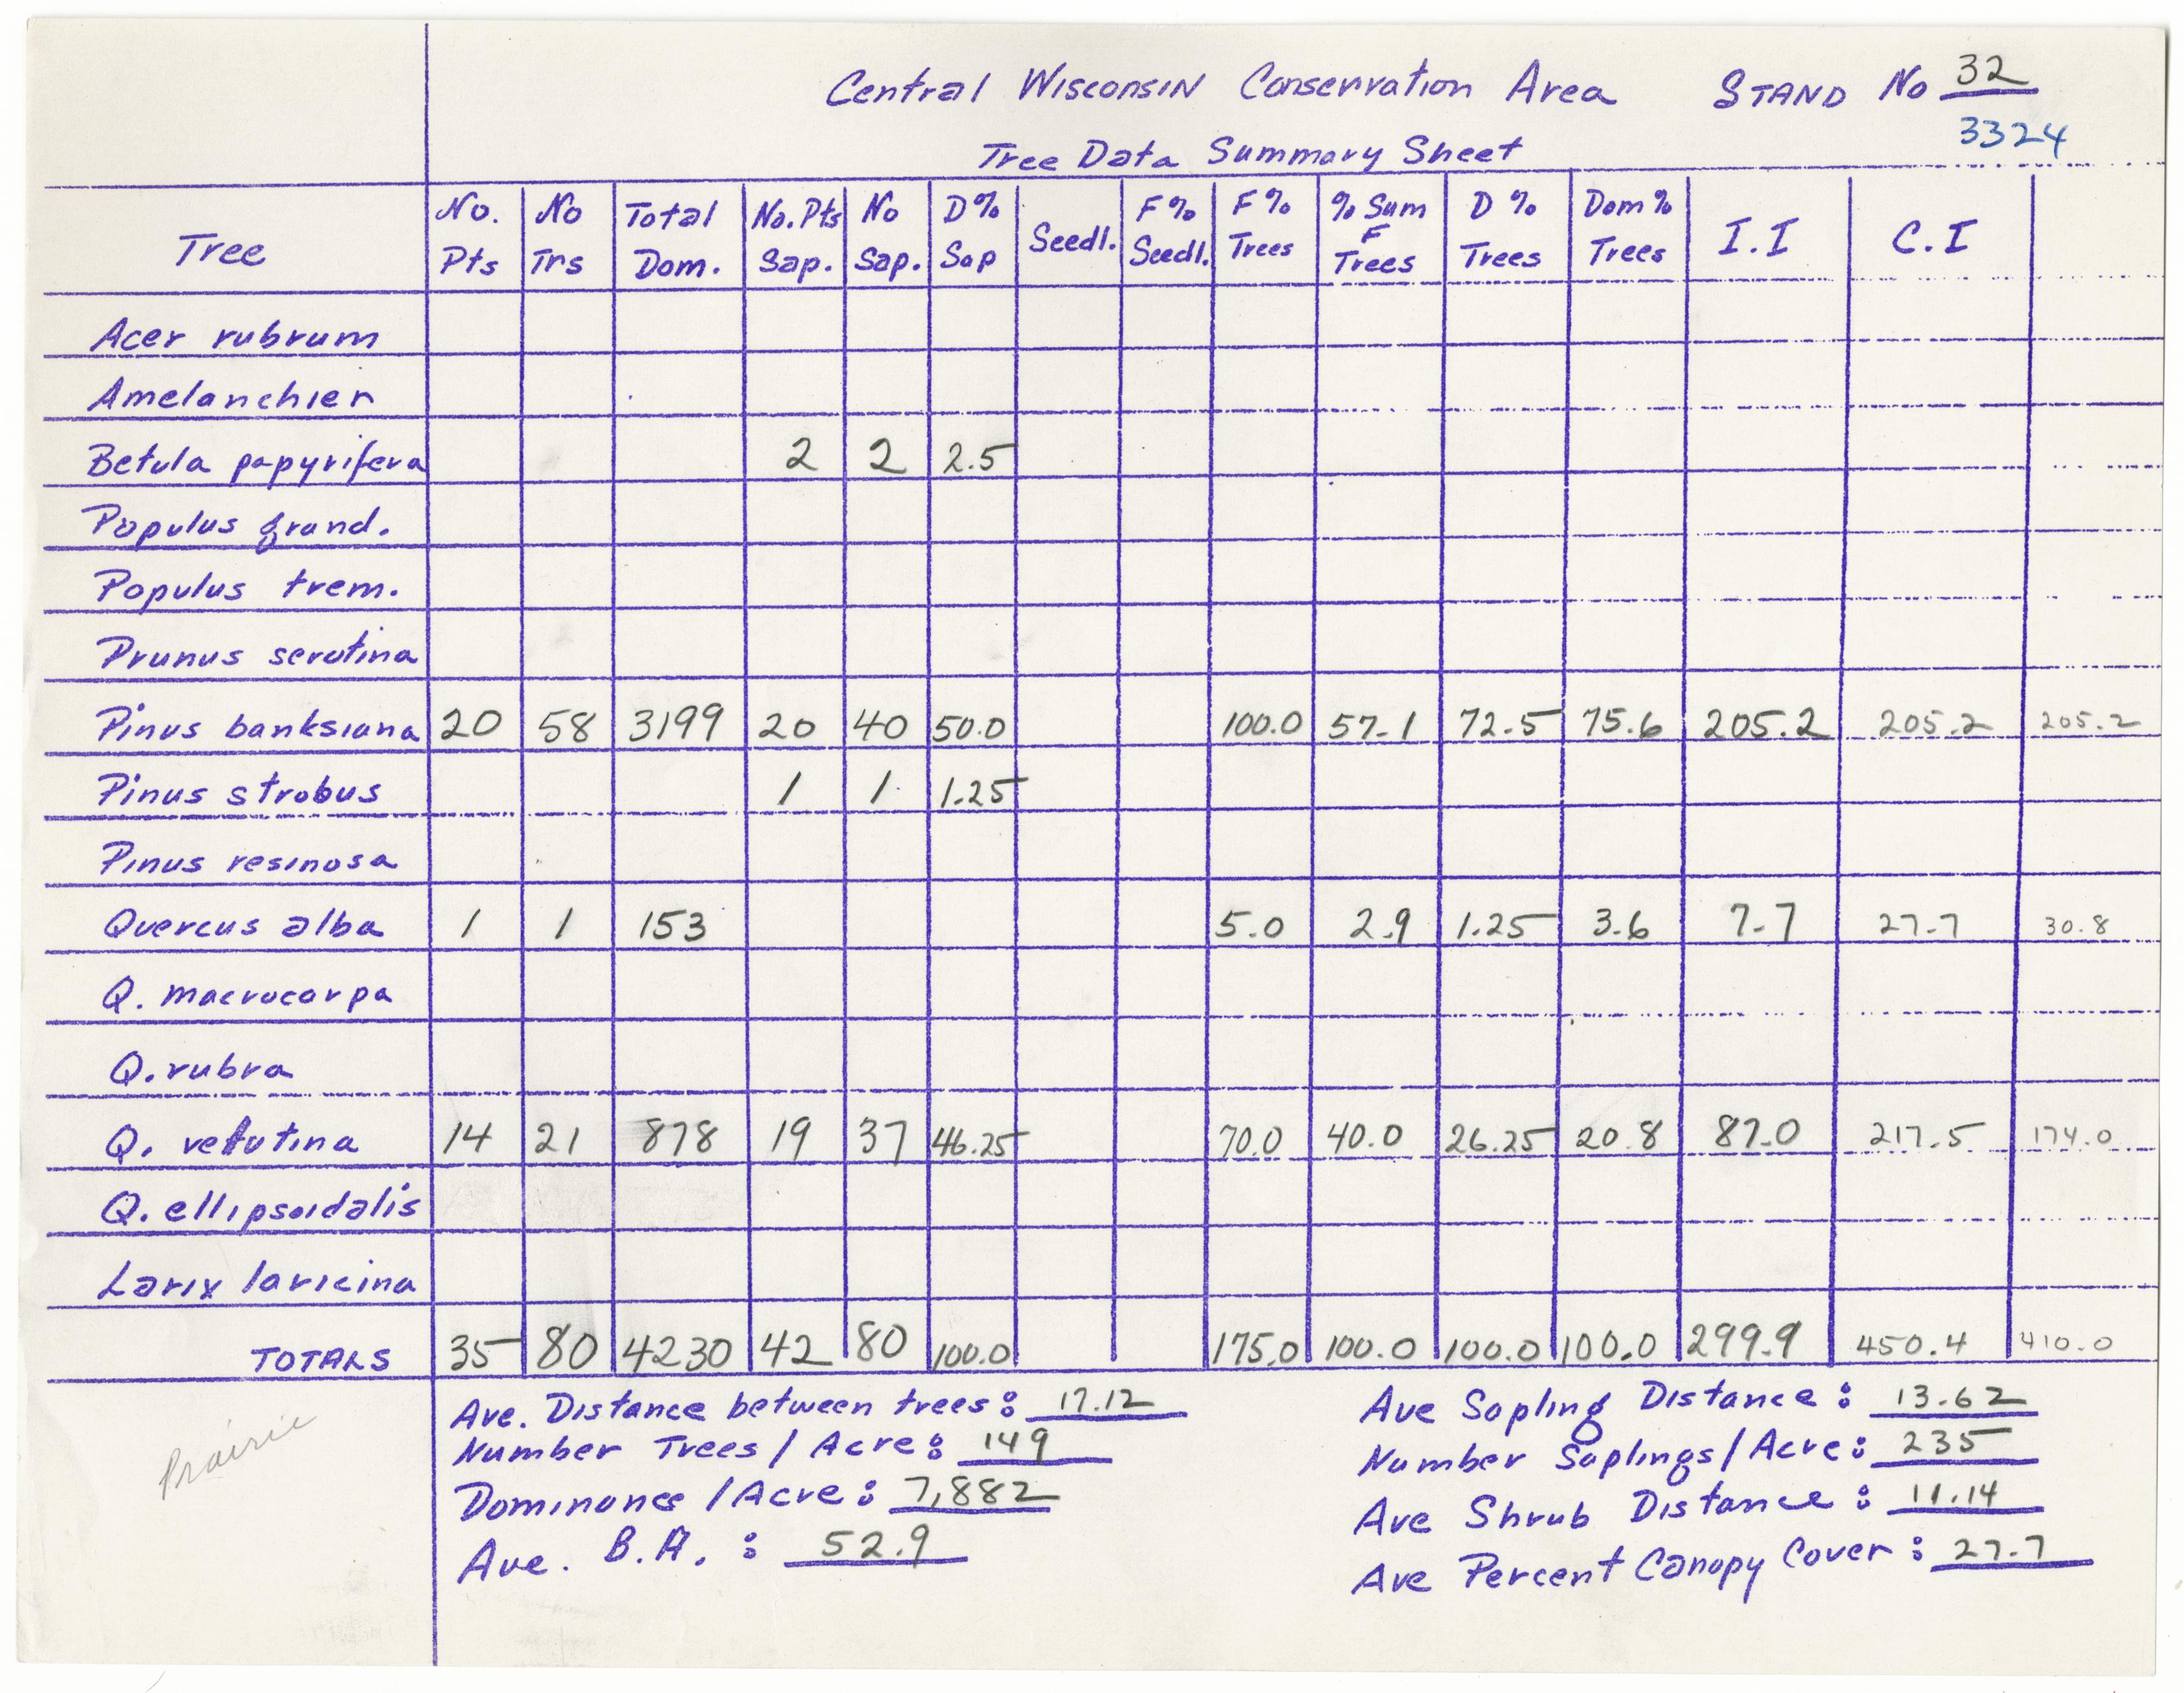 Central Wisconsin Conservation Area STAND No 32
3324
Tree Data Summary Sheet
Tree | No. Pts | No Trs | Total Dom. | No. Pts Sap. | No Sap. | D% Sap | Seedl. | F% Seedl. | F% Trees | % Sum F Trees | D % Trees | Dom % Trees | I.I | C.I
Acer rubrum
Amelanchier
Betula papyrifera 2 2 2.5
Populus grand.
Populus trem.
Prunus serotina
Pinus banksiana 20 58 3199 20 40 50.0 100.0 57.1 72.5 75.6 205.2 205.2 205.2
Pinus strobus 1 1 1.25
Pinus resinosa
Quercus alba 1 1 153 5.0 2.9 1.25 3.6 7.7 27.7 30.8
Q. macrocarpa
Q. rubra
Q. velutina 14 21 878 19 37 46.25 70.0 40.0 26.25 20.8 87.0 217.5 174.0
Q. ellipsoidalis
Larix laricina
TOTALS 35 80 4230 42 80 100.0 175.0 100.0 100.0 100.0 299.9 450.4 410.0
Prairie
Ave. Distance between trees: 17.12
Number Trees / Acre: 149
Dominance / Acre: 7,882
Ave. B.A. : 52.9
Ave Sapling Distance: 13.62
Number Saplings / Acre: 235
Ave Shrub Distance: 11.14
Ave Percent Canopy Cover: 27.7